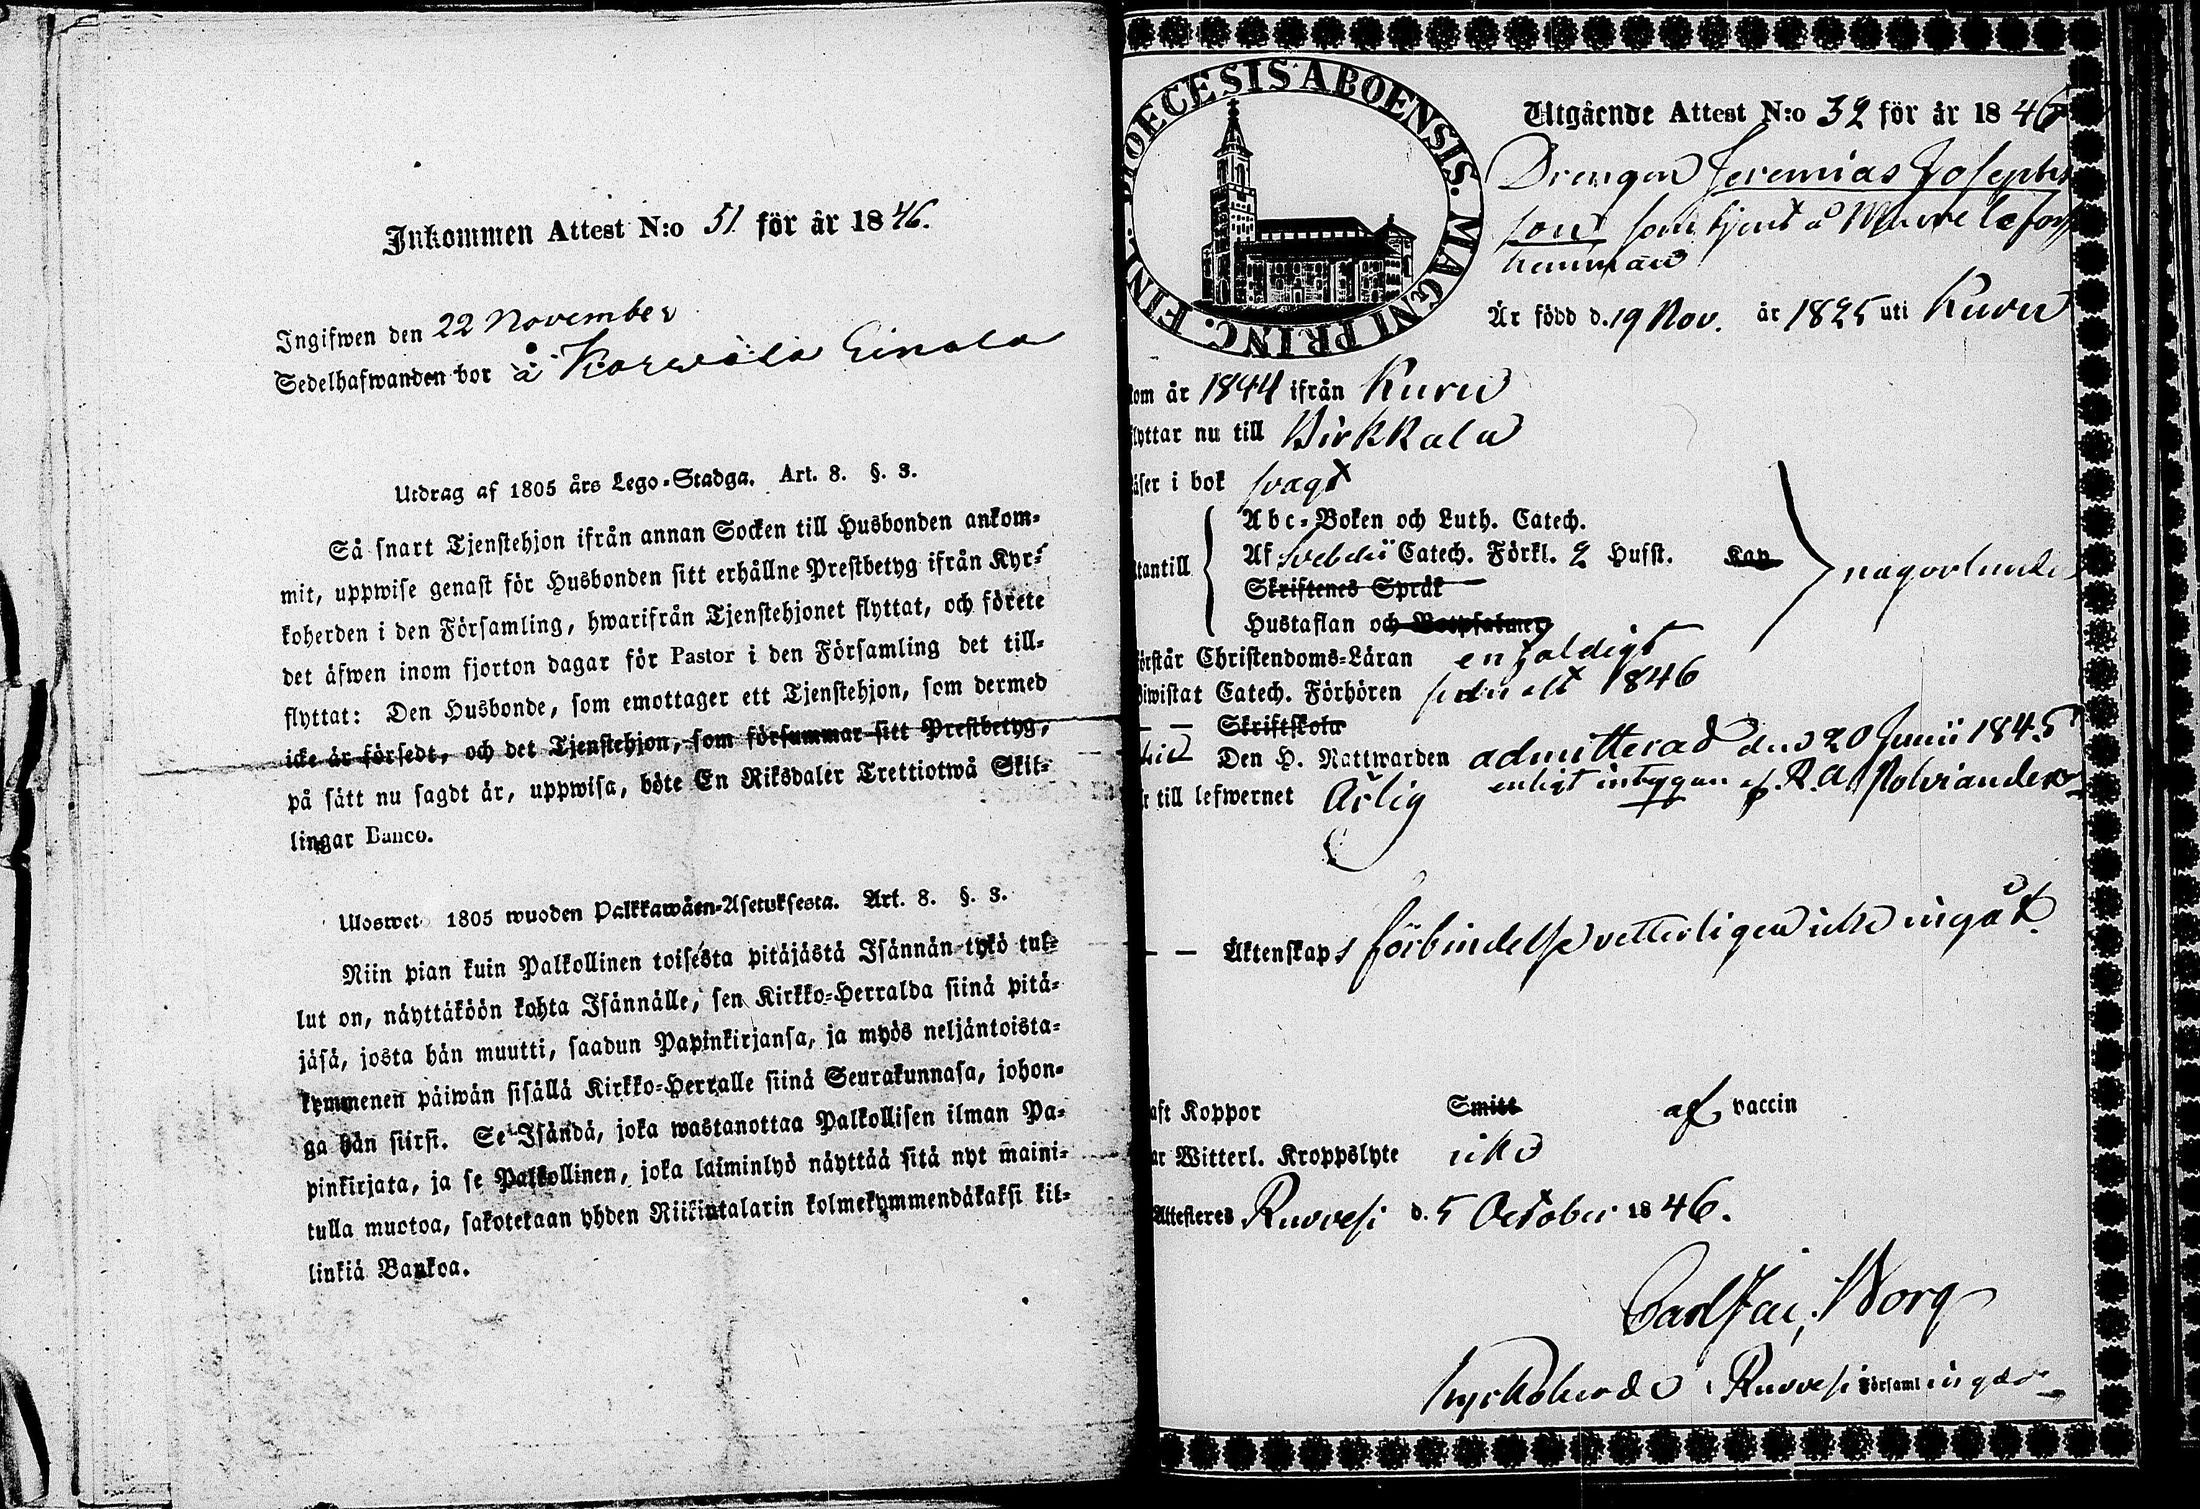 Inkommen Attest N:o 51 för år 1846.
Ingifwen den 22 November
Sedelhafwanden bor å Korwola Einola
Utdrag af 1805 års Lego-Stadga. Art. 8. §. 3.
Så snart Tjenstehjon ifrån annan Socken till Husbonden ankom-
mit, uppwise genast för Husbonden sitt erhållne Prestbetyg ifrån Kyr-
koherden i den Församling, hwarifrån Tjenstehjonet flyttat, och förete
det äfwen inom fjorton dagar för Pastor i den Församling det till-
flyttat: Den Husbonde, som emottager ett Tjenstehjon, som dermed
icke är försedt, och det Tjenstehjon, som försummar sitt Prestbetyg,
på sätt nu sagdt är, uppwisa, böte En Riksdaler Trettiotwå Skil-
lingar Banco.
Uloswet 1805 wuoden Palkkawäen-Asetuksesta. Art. 8. §. 3.
Niin pian kuin Palkollinen toisesta pitäjästä Isännän tykö tul-
lut on, näyttäköön kohta Isännälle, sen Kirkko-Herralda siinä pitä-
jäsä, josta hän muutti, saadun Papinkirjansa, ja myös neljäntoista-
kymmenen päiwän sisällä Kirkko-Herralle siinä Seurakunnasa, johon-
ga hän siirsi. Se Isändä, joka wastanottaa Palkollisen ilman Pa-
pinkirjata, ja se Palkollinen, joka laiminlyö näyttää sitä nyt maini-
tulla muotoa, sakotetaan yhden Riikintalarin kolmekymmendäkaksi kil-
linkiä Bankoa.
DIOECESIS ABOENSIS. MAGNI PRINC. FINL.
Utgående Attest N:o 32 för år 1846
Drengen Jeremias Josephs
son som tjent å
Är född d. 19 Nov. år 1825 uti Kuru
kom år 1844 ifrån Kuru
flyttar nu till Birkkala
läser i bok svagt
Abc-Boken och Luth. Catech.
utantill Af Svebelii Catech. Förkl. 2 Hufst. Kap någorlunda
Skriftenes Språk
Hustaflan och Botpsalmer
förstår Christendoms-Läran enfaldigt
biwistat Catech. Förhören sednast 1846
— — Skriftskola
Den H. Nattwarden admitterad den 20 Junii 1845
enligt intygan af R. A. Polviander
är till lefwernet Ärlig
— — Äktenskaps förbindelse vetterligen icke ingått
haft Koppor Smitt af vaccin
har Witterl. Kroppslyte icke
Attesteras Ruovesi d. 5 October 1846.
Carl Jac. Borg
Kyrkoherde i Ruovesi Församlingar